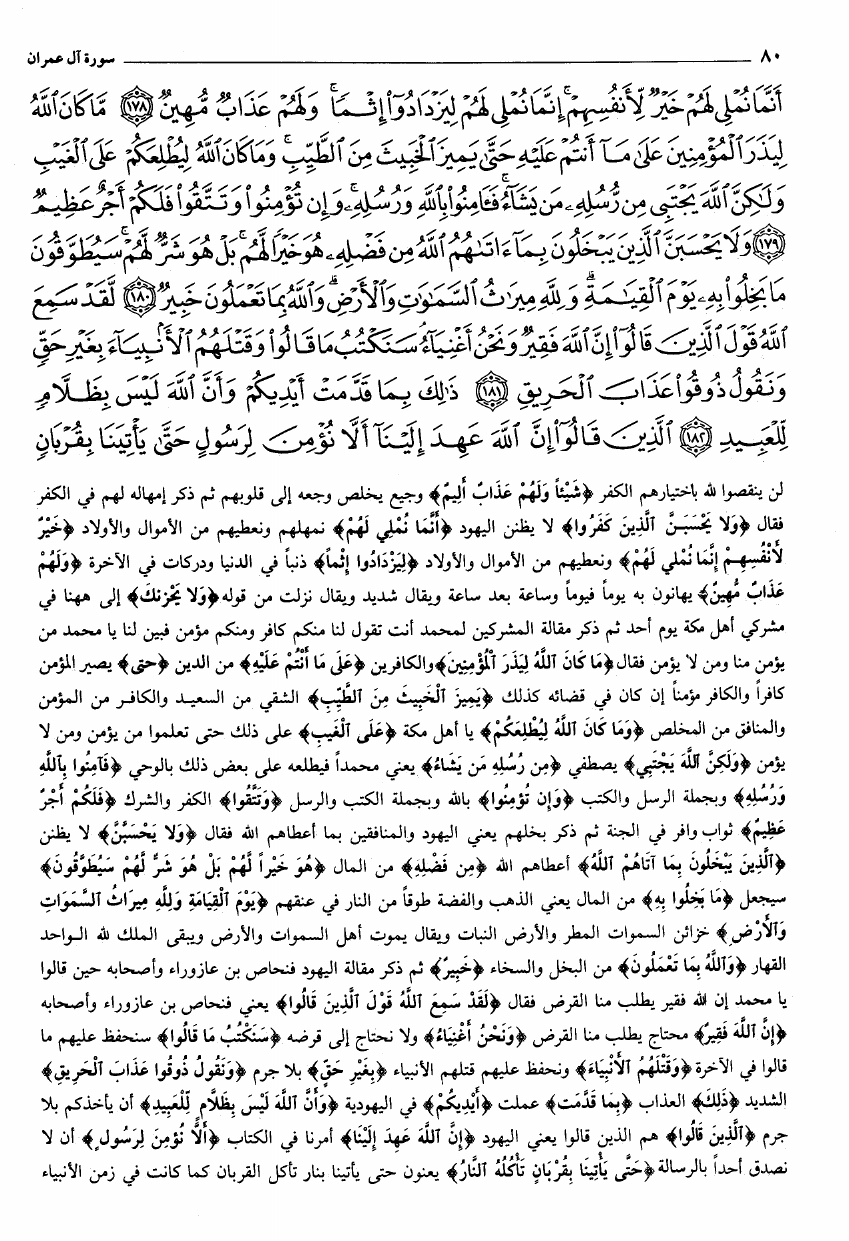 ٨٠ سورة آل عمران
أَنَّمَا نُمْلِى لَهُمْ خَيْرٌ لِّأَنفُسِهِمْ ۚ إِنَّمَا نُمْلِى لَهُمْ لِيَزْدَادُوٓا۟ إِثْمًا ۚ وَلَهُمْ عَذَابٌ مُّهِينٌ ﴿١٧٨﴾ مَّا كَانَ ٱللَّهُ
لِيَذَرَ ٱلْمُؤْمِنِينَ عَلَىٰ مَآ أَنتُمْ عَلَيْهِ حَتَّىٰ يَمِيزَ ٱلْخَبِيثَ مِنَ ٱلطَّيِّبِ ۗ وَمَا كَانَ ٱللَّهُ لِيُطْلِعَكُمْ عَلَى ٱلْغَيْبِ
وَلَٰكِنَّ ٱللَّهَ يَجْتَبِى مِن رُّسُلِهِۦ مَن يَشَآءُ ۖ فَـَٔامِنُوا۟ بِٱللَّهِ وَرُسُلِهِۦ ۚ وَإِن تُؤْمِنُوا۟ وَتَتَّقُوا۟ فَلَكُمْ أَجْرٌ عَظِيمٌ
﴿١٧٩﴾ وَلَا يَحْسَبَنَّ ٱلَّذِينَ يَبْخَلُونَ بِمَآ ءَاتَىٰهُمُ ٱللَّهُ مِن فَضْلِهِۦ هُوَ خَيْرًا لَّهُم ۖ بَلْ هُوَ شَرٌّ لَّهُمْ ۖ سَيُطَوَّقُونَ
مَا بَخِلُوا۟ بِهِۦ يَوْمَ ٱلْقِيَٰمَةِ ۗ وَلِلَّهِ مِيرَٰثُ ٱلسَّمَٰوَٰتِ وَٱلْأَرْضِ ۗ وَٱللَّهُ بِمَا تَعْمَلُونَ خَبِيرٌ ﴿١٨٠﴾ لَّقَدْ سَمِعَ
ٱللَّهُ قَوْلَ ٱلَّذِينَ قَالُوٓا۟ إِنَّ ٱللَّهَ فَقِيرٌ وَنَحْنُ أَغْنِيَآءُ ۘ سَنَكْتُبُ مَا قَالُوا۟ وَقَتْلَهُمُ ٱلْأَنۢبِيَآءَ بِغَيْرِ حَقٍّ
وَنَقُولُ ذُوقُوا۟ عَذَابَ ٱلْحَرِيقِ ﴿١٨١﴾ ذَٰلِكَ بِمَا قَدَّمَتْ أَيْدِيكُمْ وَأَنَّ ٱللَّهَ لَيْسَ بِظَلَّامٍ
لِّلْعَبِيدِ ﴿١٨٢﴾ ٱلَّذِينَ قَالُوٓا۟ إِنَّ ٱللَّهَ عَهِدَ إِلَيْنَآ أَلَّا نُؤْمِنَ لِرَسُولٍ حَتَّىٰ يَأْتِيَنَا بِقُرْبَانٍ
لن ينقصوا لله باختيارهم الكفر ﴿شَيْئاً وَلَهُمْ عَذَابٌ أَلِيمٌ﴾ وجيع يخلص وجعه إلى قلوبهم ثم ذكر إمهاله لهم في الكفر
فقال ﴿وَلا يَحْسَبَنَّ ٱلَّذِينَ كَفَرُوا﴾ لا يظنن اليهود ﴿أَنَّمَا نُمْلِي لَهُمْ﴾ نمهلهم ونعطيهم من الأموال والأولاد ﴿خَيْرٌ
لأَنْفُسِهِمْ إِنَّمَا نُملي لَهُمْ﴾ ونعطيهم من الأموال والأولاد ﴿لِيَزْدَادُوا إِثْماً﴾ ذنباً في الدنيا ودركات في الآخرة ﴿وَلَهُمْ
عَذَابٌ مُّهِينٌ﴾ يهانون به يوماً فيوماً وساعة بعد ساعة ويقال شديد ويقال نزلت من قوله ﴿وَلا يَحْزنكَ﴾ إلى ههنا في
مشركي أهل مكة يوم أحد ثم ذكر مقالة المشركين لمحمد أنت تقول لنا منكم كافر ومنكم مؤمن فبين لنا يا محمد من
يؤمن منا ومن لا يؤمن فقال ﴿مَا كَانَ ٱللَّهُ لِيَذَرَ ٱلْمُؤْمِنِينَ﴾ والكافرين ﴿عَلَى مَا أَنْتُمْ عَلَيْهِ﴾ من الدين ﴿حتى﴾ يصير المؤمن
كافراً والكافر مؤمناً إن كان في قضائه كذلك ﴿يَمِيزَ ٱلْخَبِيثَ مِنَ ٱلطَّيِّبِ﴾ الشقي من السعيد والكافر من المؤمن
والمنافق من المخلص ﴿وَمَا كَانَ ٱللَّهُ لِيُطْلِعَكُمْ﴾ يا أهل مكة ﴿عَلَى ٱلْغَيبِ﴾ على ذلك حتى تعلموا من يؤمن ومن لا
يؤمن ﴿وَلَكِنَّ ٱللَّهَ يَجْتَبِي﴾ يصطفي ﴿مِن رُسُلِهِ مَن يَشَاءُ﴾ يعني محمداً فيطلعه على بعض ذلك بالوحي ﴿فَآمِنُوا بِٱللَّهِ
وَرُسُلِهِ﴾ وبجملة الرسل والكتب ﴿وَإِن تُؤْمِنُوا﴾ بالله وبجملة الكتب والرسل ﴿وَتَتَّقُوا﴾ الكفر والشرك ﴿فَلَكُمْ أَجْرٌ
عَظِيمٌ﴾ ثواب وافر في الجنة ثم ذكر بخلهم يعني اليهود والمنافقين بما أعطاهم الله فقال ﴿وَلا يَحْسَبَنَّ﴾ لا يظنن
﴿ٱلَّذِينَ يَبْخَلُونَ بِمَا آتاهُمْ ٱللَّهُ﴾ أعطاهم الله ﴿مِن فَضْلِهِ﴾ من المال ﴿هُوَ خَيْراً لَّهُمْ بَلْ هُوَ شَرٌّ لَهُمْ سَيُطَوَّقُونَ﴾
سيجعل ﴿مَا بَخِلُوا بِهِ﴾ من المال يعني الذهب والفضة طوقاً من النار في عنقهم ﴿يَوْمَ ٱلْقِيَامَةِ وَلِلَّهِ مِيرَاثُ ٱلسَّمَوَاتِ
وَٱلأَرْضِ﴾ خزائن السموات المطر والأرض النبات ويقال يموت أهل السموات والأرض ويبقى الملك لله الواحد
القهار ﴿وَٱللَّهُ بِمَا تَعْمَلُونَ﴾ من البخل والسخاء ﴿خَبِيرٌ﴾ ثم ذكر مقالة اليهود فنحاص بن عازوراء وأصحابه حين قالوا
يا محمد إن لله فقير يطلب منا القرض فقال ﴿لَقَدْ سَمِعَ ٱللَّهُ قَوْلَ ٱلَّذِينَ قَالُوا﴾ يعني فنحاص بن عازوراء وأصحابه
﴿إِنَّ ٱللَّهَ فَقِيرٌ﴾ محتاج يطلب منا القرض ﴿وَنَحْنُ أَغْنِيَاءُ﴾ ولا نحتاج إلى قرضه ﴿سَنَكْتُبُ مَا قَالُوا﴾ سنحفظ عليهم ما
قالوا في الآخرة ﴿وَقَتْلَهُمُ ٱلأَنْبِيَاءَ﴾ ونحفظ عليهم قتلهم الأنبياء ﴿بِغَيْرِ حَقٍّ﴾ بلا جرم ﴿وَنَقُولُ ذُوقُوا عَذَابَ ٱلْحَرِيقِ﴾
الشديد ﴿ذَلِكَ﴾ العذاب ﴿بِمَا قَدَّمَت﴾ عملت ﴿أَيْدِيكُمْ﴾ في اليهودية ﴿وَأَنَّ ٱللَّهَ لَيْسَ بِظَلَّامٍ لِّلْعَبِيدِ﴾ أن يأخذكم بلا
جرم ﴿ٱلَّذِينَ قَالُوا﴾ هم الذين قالوا يعني اليهود ﴿إِنَّ ٱللَّهَ عَهِدَ إِلَيْنَا﴾ أمرنا في الكتاب ﴿أَلَّا نُؤْمِنَ لِرَسُولٍ﴾ أن لا
نصدق أحداً بالرسالة ﴿حَتَّى يَأْتِيَنَا بِقُرْبَانٍ تَأْكُلُهُ ٱلنَّارُ﴾ يعنون حتى يأتينا بنار تأكل القربان كما كانت في زمن الأنبياء